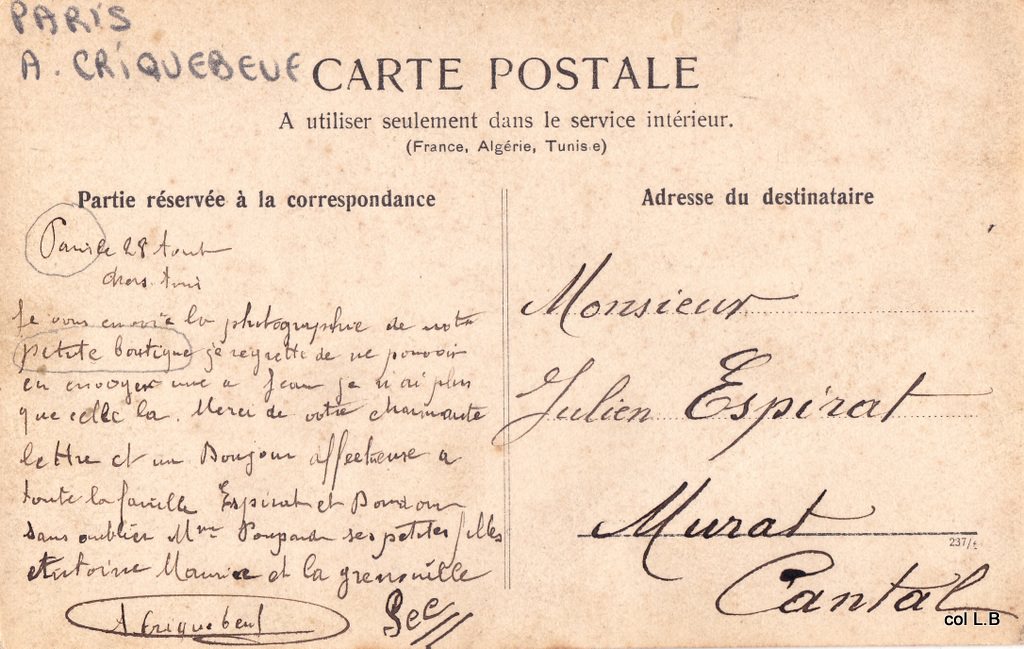 PARIS
A. CRIQUEBEUF
CARTE POSTALE
A utiliser seulement dans le service intérieur.
(France, Algérie, Tunisie)
Partie réservée à la correspondance
Paris le 28 Aout
chers tous
Je vous envoie la photographie de notre
petite boutique je regrette de ne pouvoir
en envoyer une a Jean je n'ai plus
que celle la. Merci de votre charmante
lettre et un Bonjour affectueuse a
toute la famille Espirat et
sans oublier Mme ses petites filles
Antoine Maurice et la grenouille
A Criquebeuf
Adresse du destinataire
Monsieur
Julien Espirat
Murat
Cantal
237/
col L.B